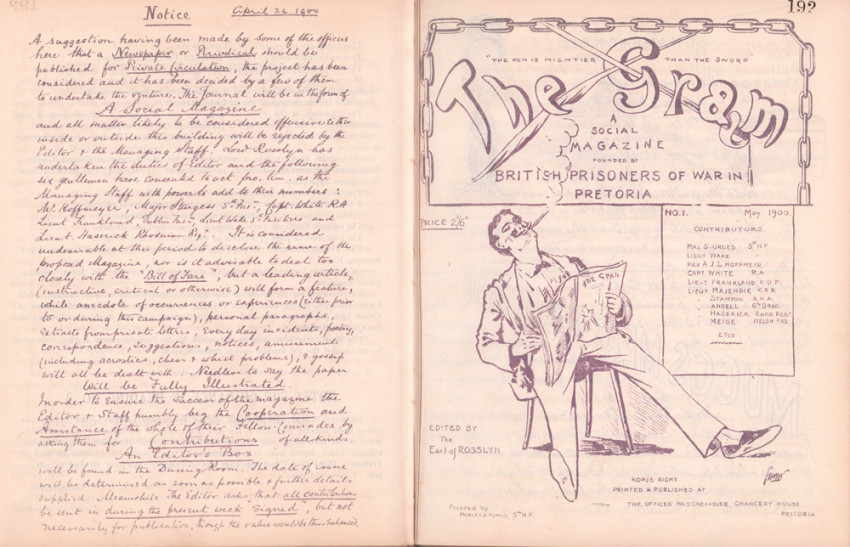 Notice April 24. 1900
A suggestion having been made by some of the officers
here that a Newspaper or Periodical should be
published for Private Circulation, the project has been
considered and it has been decided by a few of them
to undertake the venture. The Journal will be in the form of
A Social Magazine
and all matter likely to be considered offensive either
inside or outside this building will be rejected by the
Editor & the Managing Staff. Lord Rosslyn has
undertaken the duties of Editor and the following
six gentlemen have consented to act pro. tem. as the
Managing Staff with power to add to their numbers:
Mr Hoffmeyer, Major Sturges 5th Fus., Capt. White R.A
Lieut Frankland, Dublin Fus., Lieut Wake 5th Fusiliers and
Lieut. Haserick Rhodesian Regt. It is considered
undesirable at this period to disclose the name of the
proposed Magazine, nor is it advisable to deal too
closely with the "Bill of Fare" but a leading article,
(instructive, critical or otherwise) will form a feature,
while anecdote of occurrences or experiences (either prior
to or during this campaign), personal paragraphs,
extracts from private letters, Every day incidents, poetry,
correspondence, suggestions, notices, amusements
(including acrostics, chess & whist problems), & gossip
will all be dealt with. Needless to say the paper
Will be Fully Illustrated.
In order to Ensure the Success of the magazine the
Editor & Staff humbly beg the Cooperation and
Assistance of the whole of their Fellow-Comrades by
asking them for Contributions of all kinds.
An Editor's Box
will be found in the Dining Room. The date of issue
will be determined as soon as possible & further details
supplied. Meanwhile the Editor asks that all contributions
be sent in during the present week signed, but not
necessarily for publication, though the value would be thus Enhanced.
192
"THE PEN IS MIGHTIER THAN THE SWORD"
The Gram
A
SOCIAL
MAGAZINE
FOUNDED BY
BRITISH PRISONERS OF WAR IN
PRETORIA
PRICE 2/6
NO. 1. May 1900.
CONTRIBUTORS
MAJ STURGES 5TH N.F.
LIEUT WAKE
REV A.J.L. HOFFMEYR
CAPT WHITE R.A.
LIEUT FRANKLAND R.D.F.
LIEUT MAJENDIE K.R.R.
" STANTON R.H.A.
" ANSELL 6TH DRAG
" HASERICK RHOD REGT
" MEIGE WELSH FUS
ETC
THE GRAM
EDITED BY
The
Earl of ROSSLYN.
KOPJE RIGHT
PRINTED & PUBLISHED AT
THE OFFICES
CHANCERY HOUSE
PRETORIA
Printed by
5TH N.F.